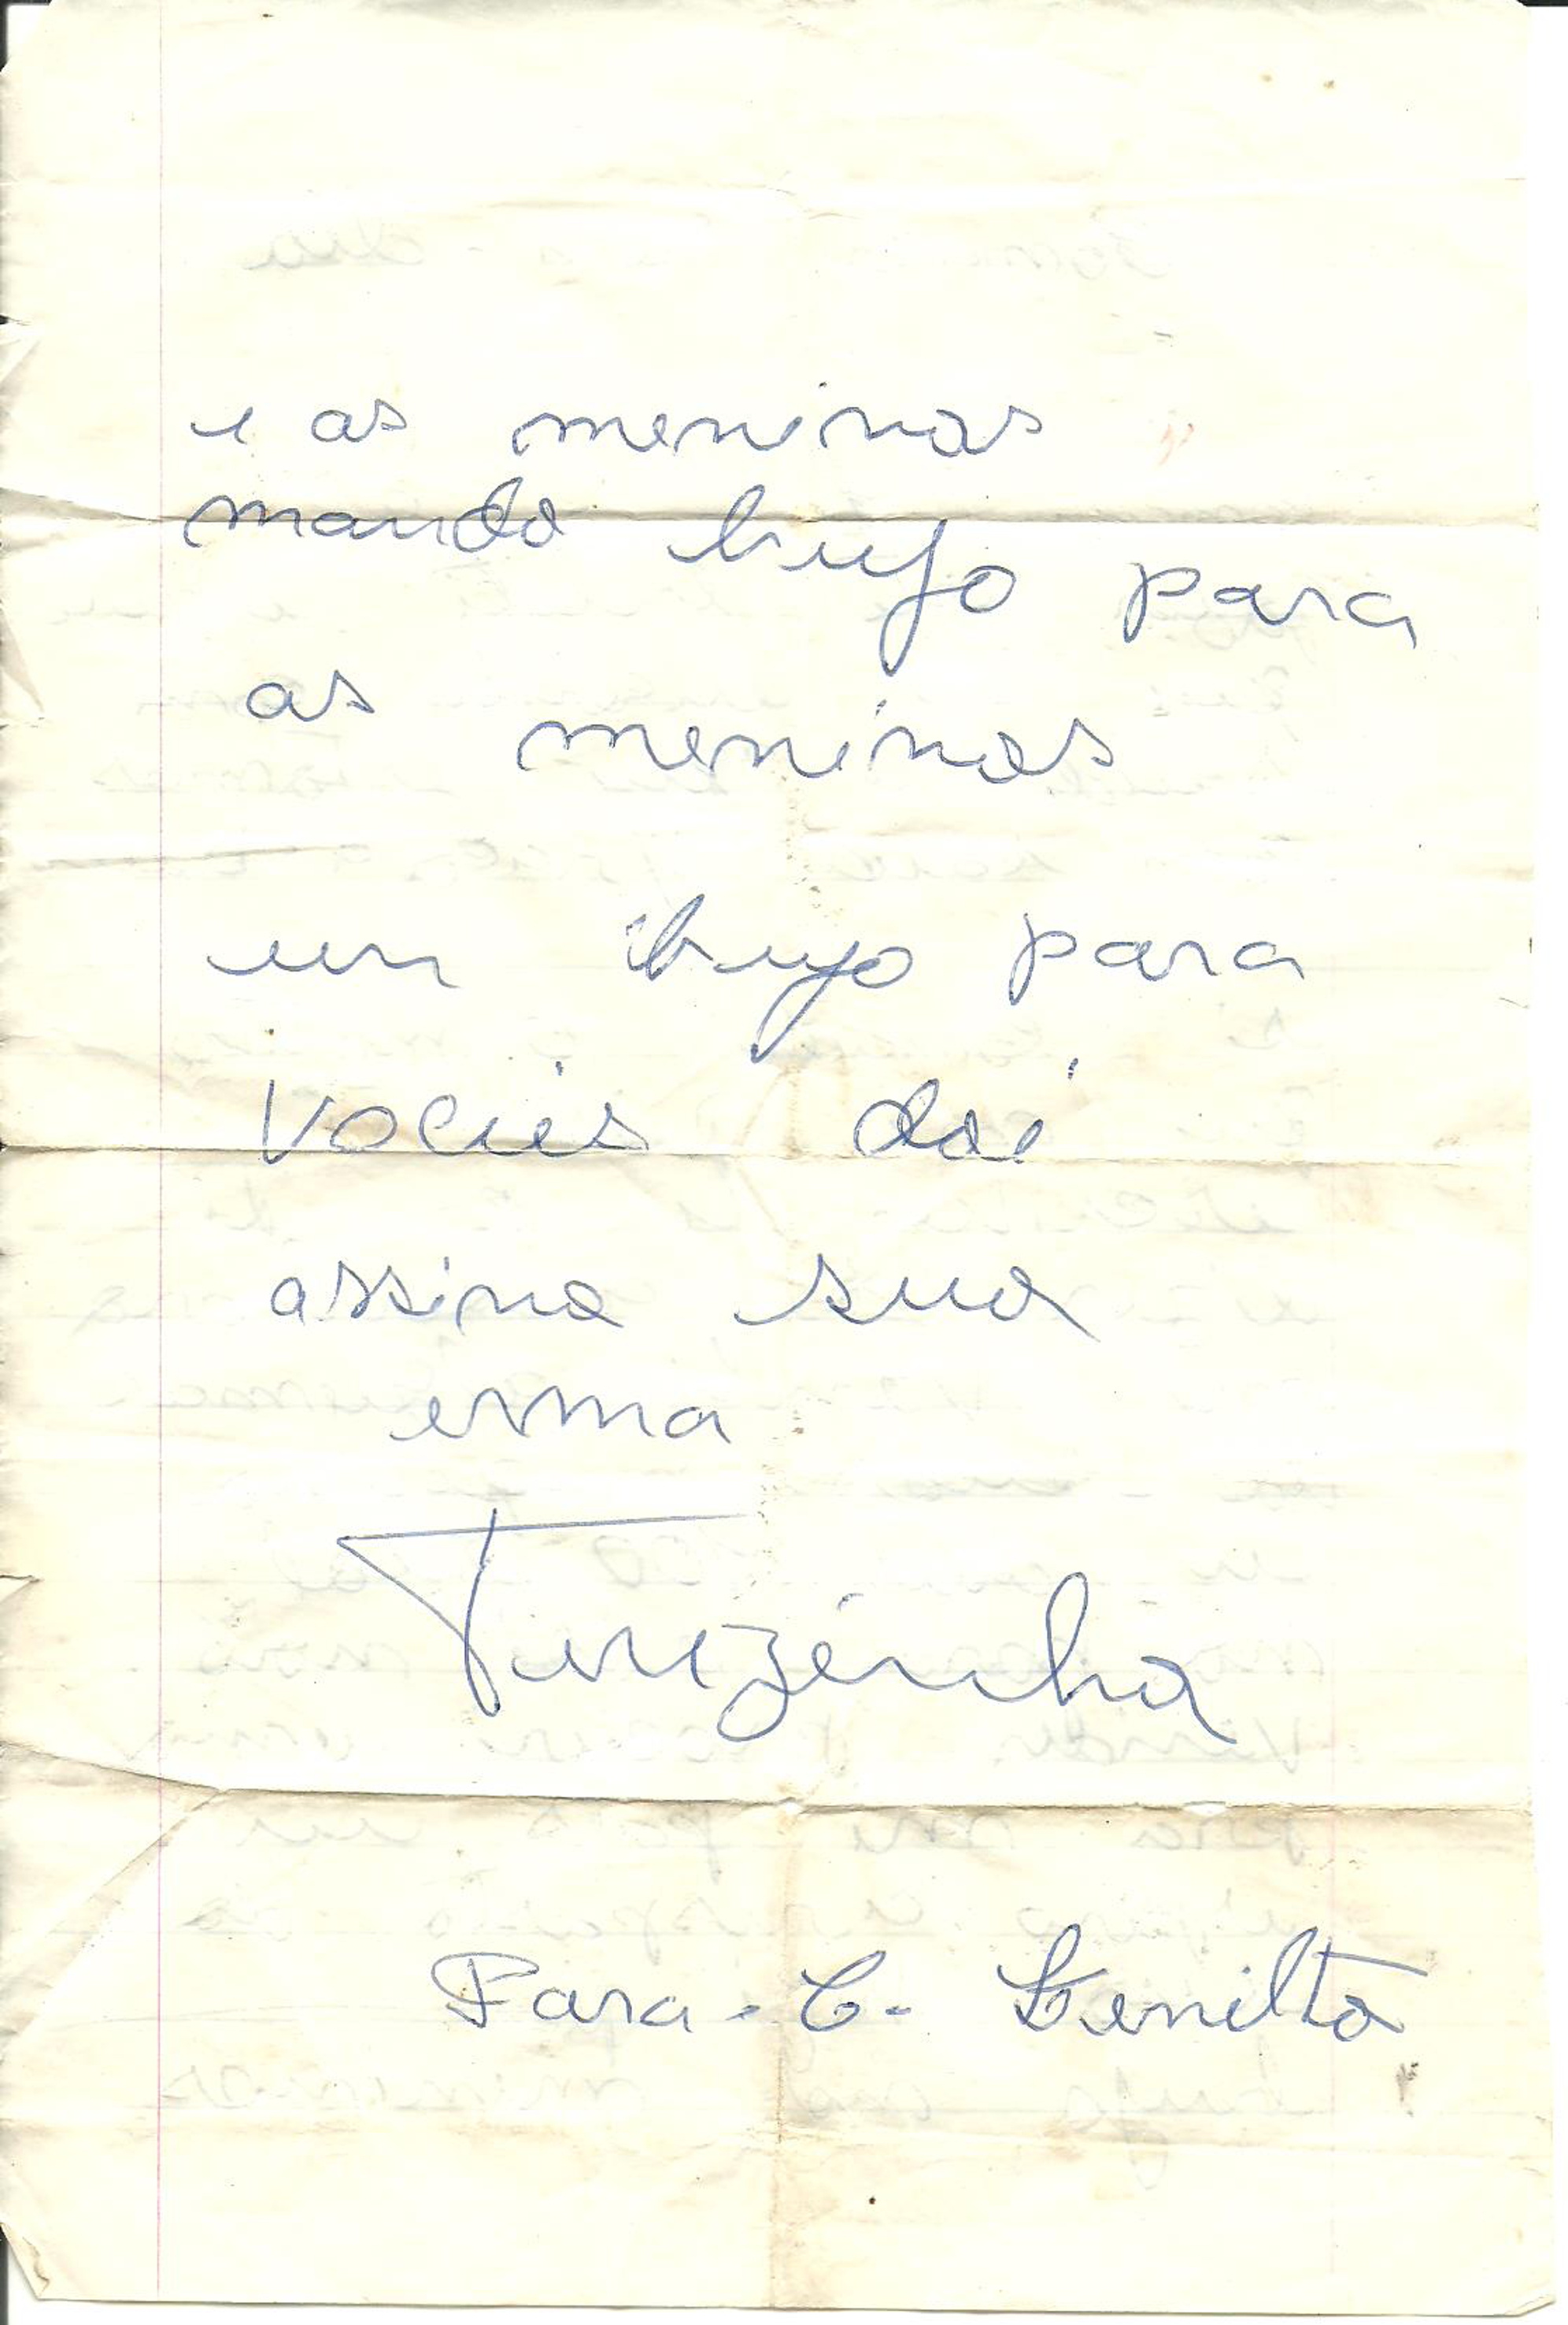 e as meninas
mando beijo para
as meninas
um beijo para
voceis doi
assina sua
erma
Terezinha
Para. C. Lenilta